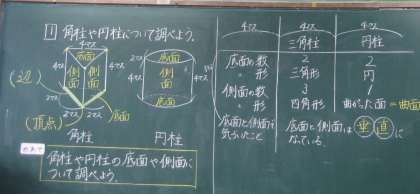 1 角柱や円柱について調べよう。
4マス
底面
側面
側面
4マス
4マス
2マス
2マス
(辺)
(頂点)
底面
角柱
2マス
4マス
底面
側面
底面
4マス
円柱
めあて
角柱や円柱の底面や側面に
ついて調べよう。
4マス 4マス 4マス
三角柱 円柱
底面の数 2 2
〃 形 三角形 円
側面の数 3 1
〃 形 四角形 曲がった面=曲面
底面と側面で
気づいたこと
底面と側面は垂直に
なっている。